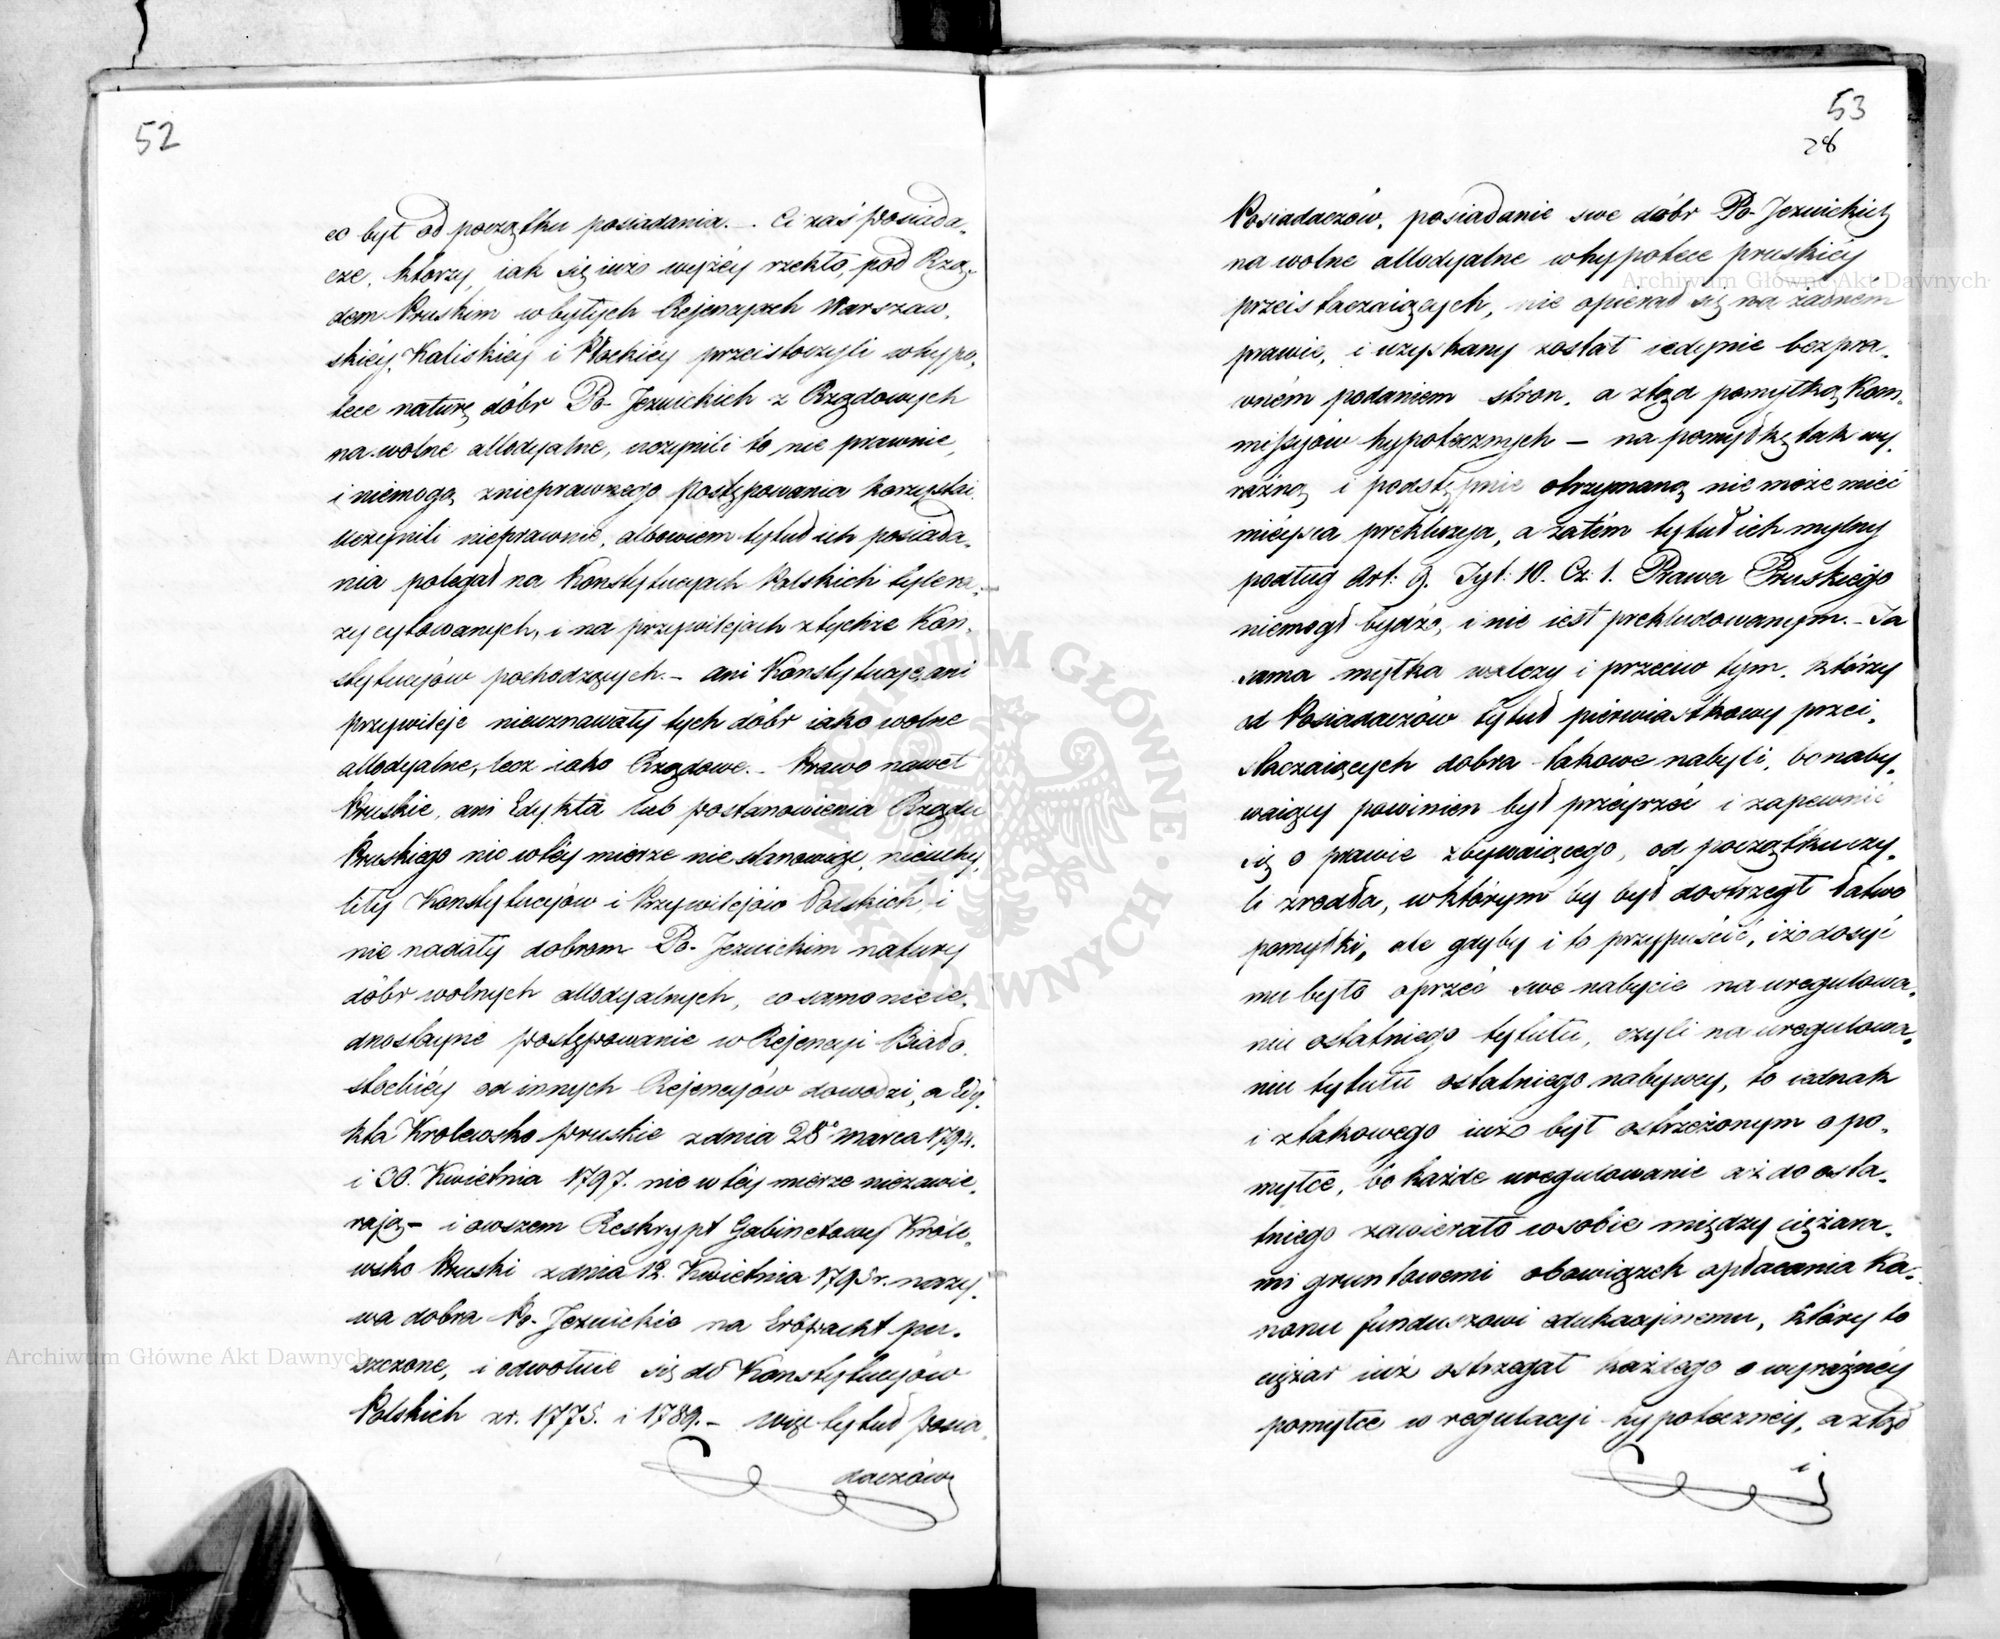 52
co był od początku posiadania. – Ci zaś posiada-
cze, którzy, iak się iuż wyżéy rzekło, pod Rzą-
dem Pruskim w byłych Rejencyach Warszaw-
skiéy, Kaliskiéy i Płockiéy przeistoczyli w hypo-
tece naturę dóbr Po-Jezuickich z Rządowych
na wolne allodyalne, uczynili to nie prawnie,
i niemogą z nieprawnego postępowania korzystać.
Uczynili nieprawnie, albowiem tytuł ich posiada-
nia polegał na Konstytucyach Polskich tylera-
zy cytowanych, i na przywilejach z tychże Kon-
stytucyów pochodzących. – ani Konstytucye, ani
przywileje nieuznawały tych dóbr iako wolne
allodyalne, lecz iako Rządowe. – Prawo nawet
Pruskie, ani Edykta lub postanowienia Rządu
Pruskiego nic w téy mierze nie stanowiąc, nieuchy-
liły Konstytucyów i Przywilejów Polskich, i
nie nadały dobrom Po-Jezuickim natury
dóbr wolnych allodyalnych, co samo nieie-
dnostayne postępowanie w Rejencyi Biało-
stockiéy od innych Rejencyów dowodzi, a Edy-
kta Królewsko pruskie z dnia 28º marca 1794.
i 30. Kwietnia 1797. nic w téy mierze niezawie-
rają – i owszem Reskrypt Gabinetowy Króle-
wsko Pruski z dnia 12. Kwietnia 1795 r. nazy-
wa dobra Po-Jezuickie na Erbpacht pu-
szczone, i odwołuie się do Konstytucyów
Polskich z r. 1775. i 1789. – Więc tytuł posia-
daczów
53
28
Posiadaczów, posiadanie swe dóbr Po-Jezuickich
na wolne allodyalne w hypotece pruskiéy
przeistaczaiących, nie opierał się na żadnem
prawie, i uzyskany został iedynie bezpra-
wném podaniem stron, a ztąd pomyłką Kom-
missyów hypotecznych – na pomyłkę tak wy-
raźną i podstępnie otrzymaną nie może mieć
mieysca prekluzya, a zatém tytuł ich mylny
podług Art: 9. Tyt: 10. Cz: 1. Prawa Pruskiego
niemógł bydź, i nie iest prekludowanym. – Ta
sama myłka walczy i przeciw tym, którzy
od Posiadaczów tytuł pierwiastkowy przei-
staczaiących dobra takowe nabyli, bo naby-
waiący powinien był przéyrzéć i zapewnić
się o prawie zbywaiącego, od początku czy-
li źrodła, w którym by był dostrzegł łatwo
pomyłki, ale gdyby i to przypuścić, iż dosyć
mu było oprzéć swe nabycie na uregulowa-
niu ostatniego tytułu, czyli na uregulowa-
niu tytułu ostatniego nabywcy, to iednak
i z takowego iuż był ostrzeżonym o po-
myłce, bo każde uregulowanie aż do osta-
tniego zawierało w sobie między ciężara-
mi gruntowemi obowiązek opłacania Ka-
nonu funduszowi edukacyinemu, który to
ciężar iuż ostrzegał każdego o wyraźnéy
pomyłce w regulacyi hypotecznéy, a ztąd
i